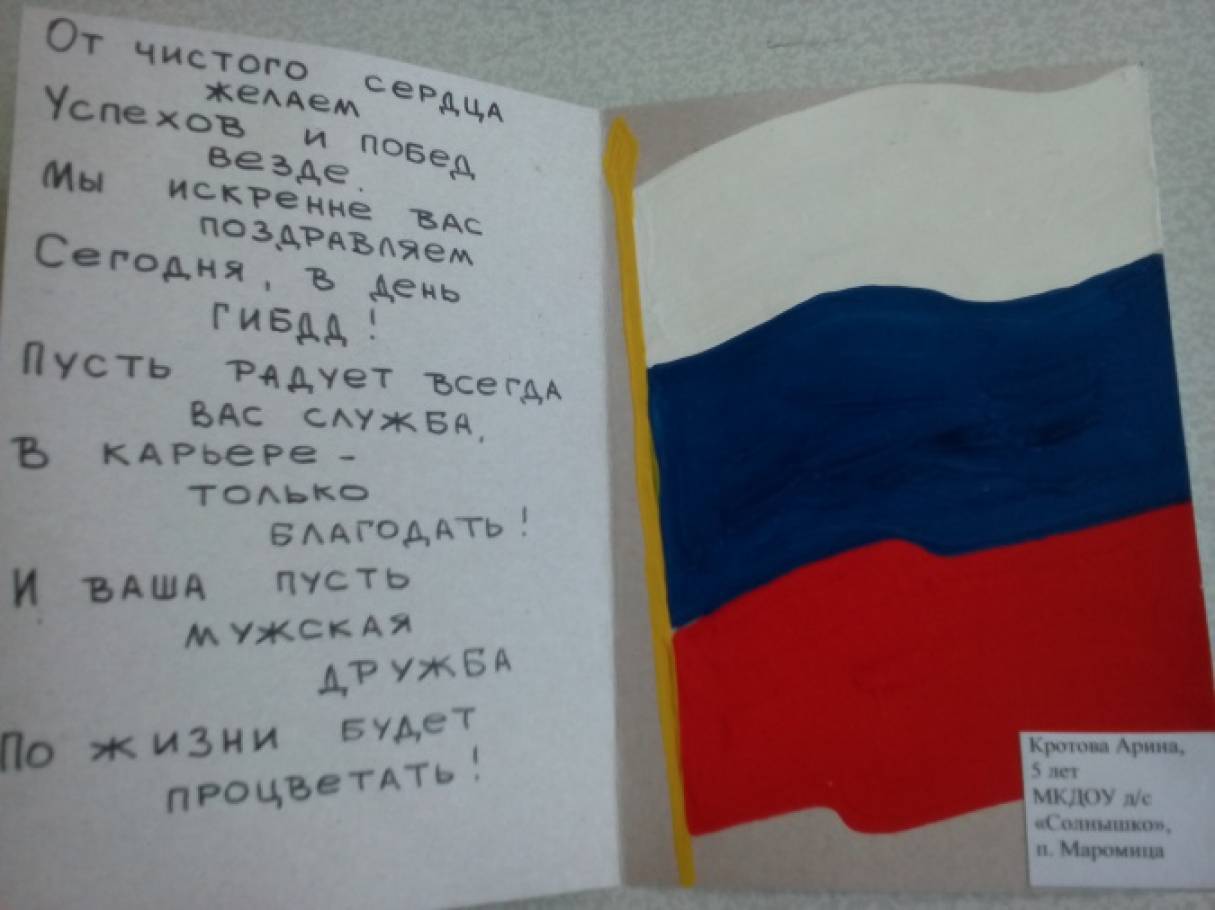 От чистого сердца
желаем
Успехов и побед
везде.
Мы искренне вас
поздравляем
Сегодня, в день
ГИБДД!
Пусть радует всегда
вас служба,
В карьере -
только
благодать!
И ваша пусть
мужская
дружба
По жизни будет
процветать!
Кротова Арина,
5 лет
МКДОУ д/с
«Солнышко»,
п. Маромица